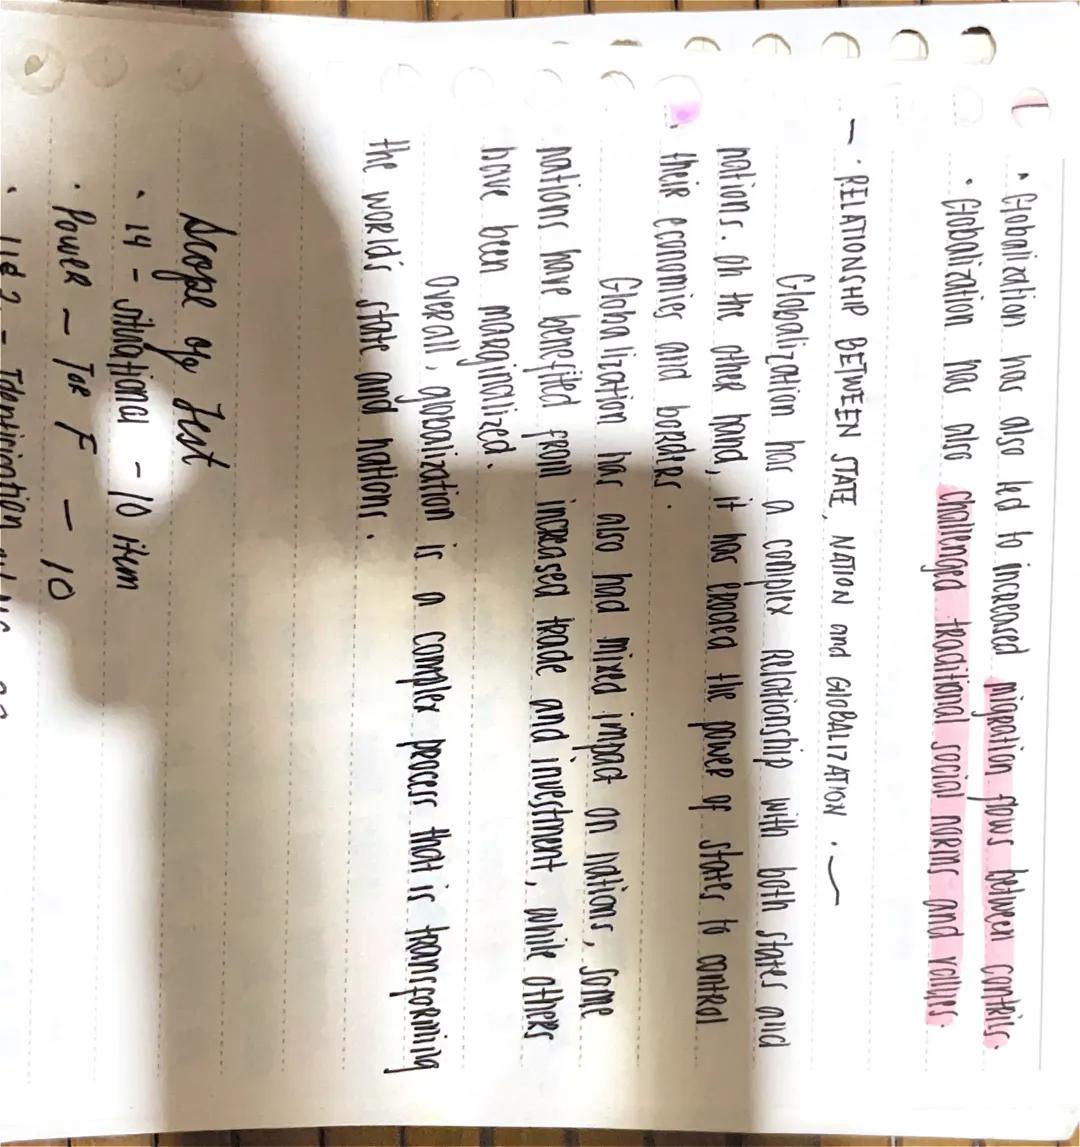 • Globalization has also led to increased migration flows between contries.
• Globalization has also challenged traditional social norms and values.
– • RELATIONSHP BETWEEN STATE, NATION and GLOBALIZATION • ~
Globalization has a complex relationship with both states and
nations. On the other hand, it has eroded the power of states to control
their economies and borders.
Globalization has also had mixed impact on nations, some
nations have benefited from increased trade and investment, while others
have been marginalized.
Overall, globalization is a complex process that is transforming
the world's state and nations.
Scope of Test
• 14 - situational - 10 item
• Power - T or F - 10
• 1 & 2 - Identification